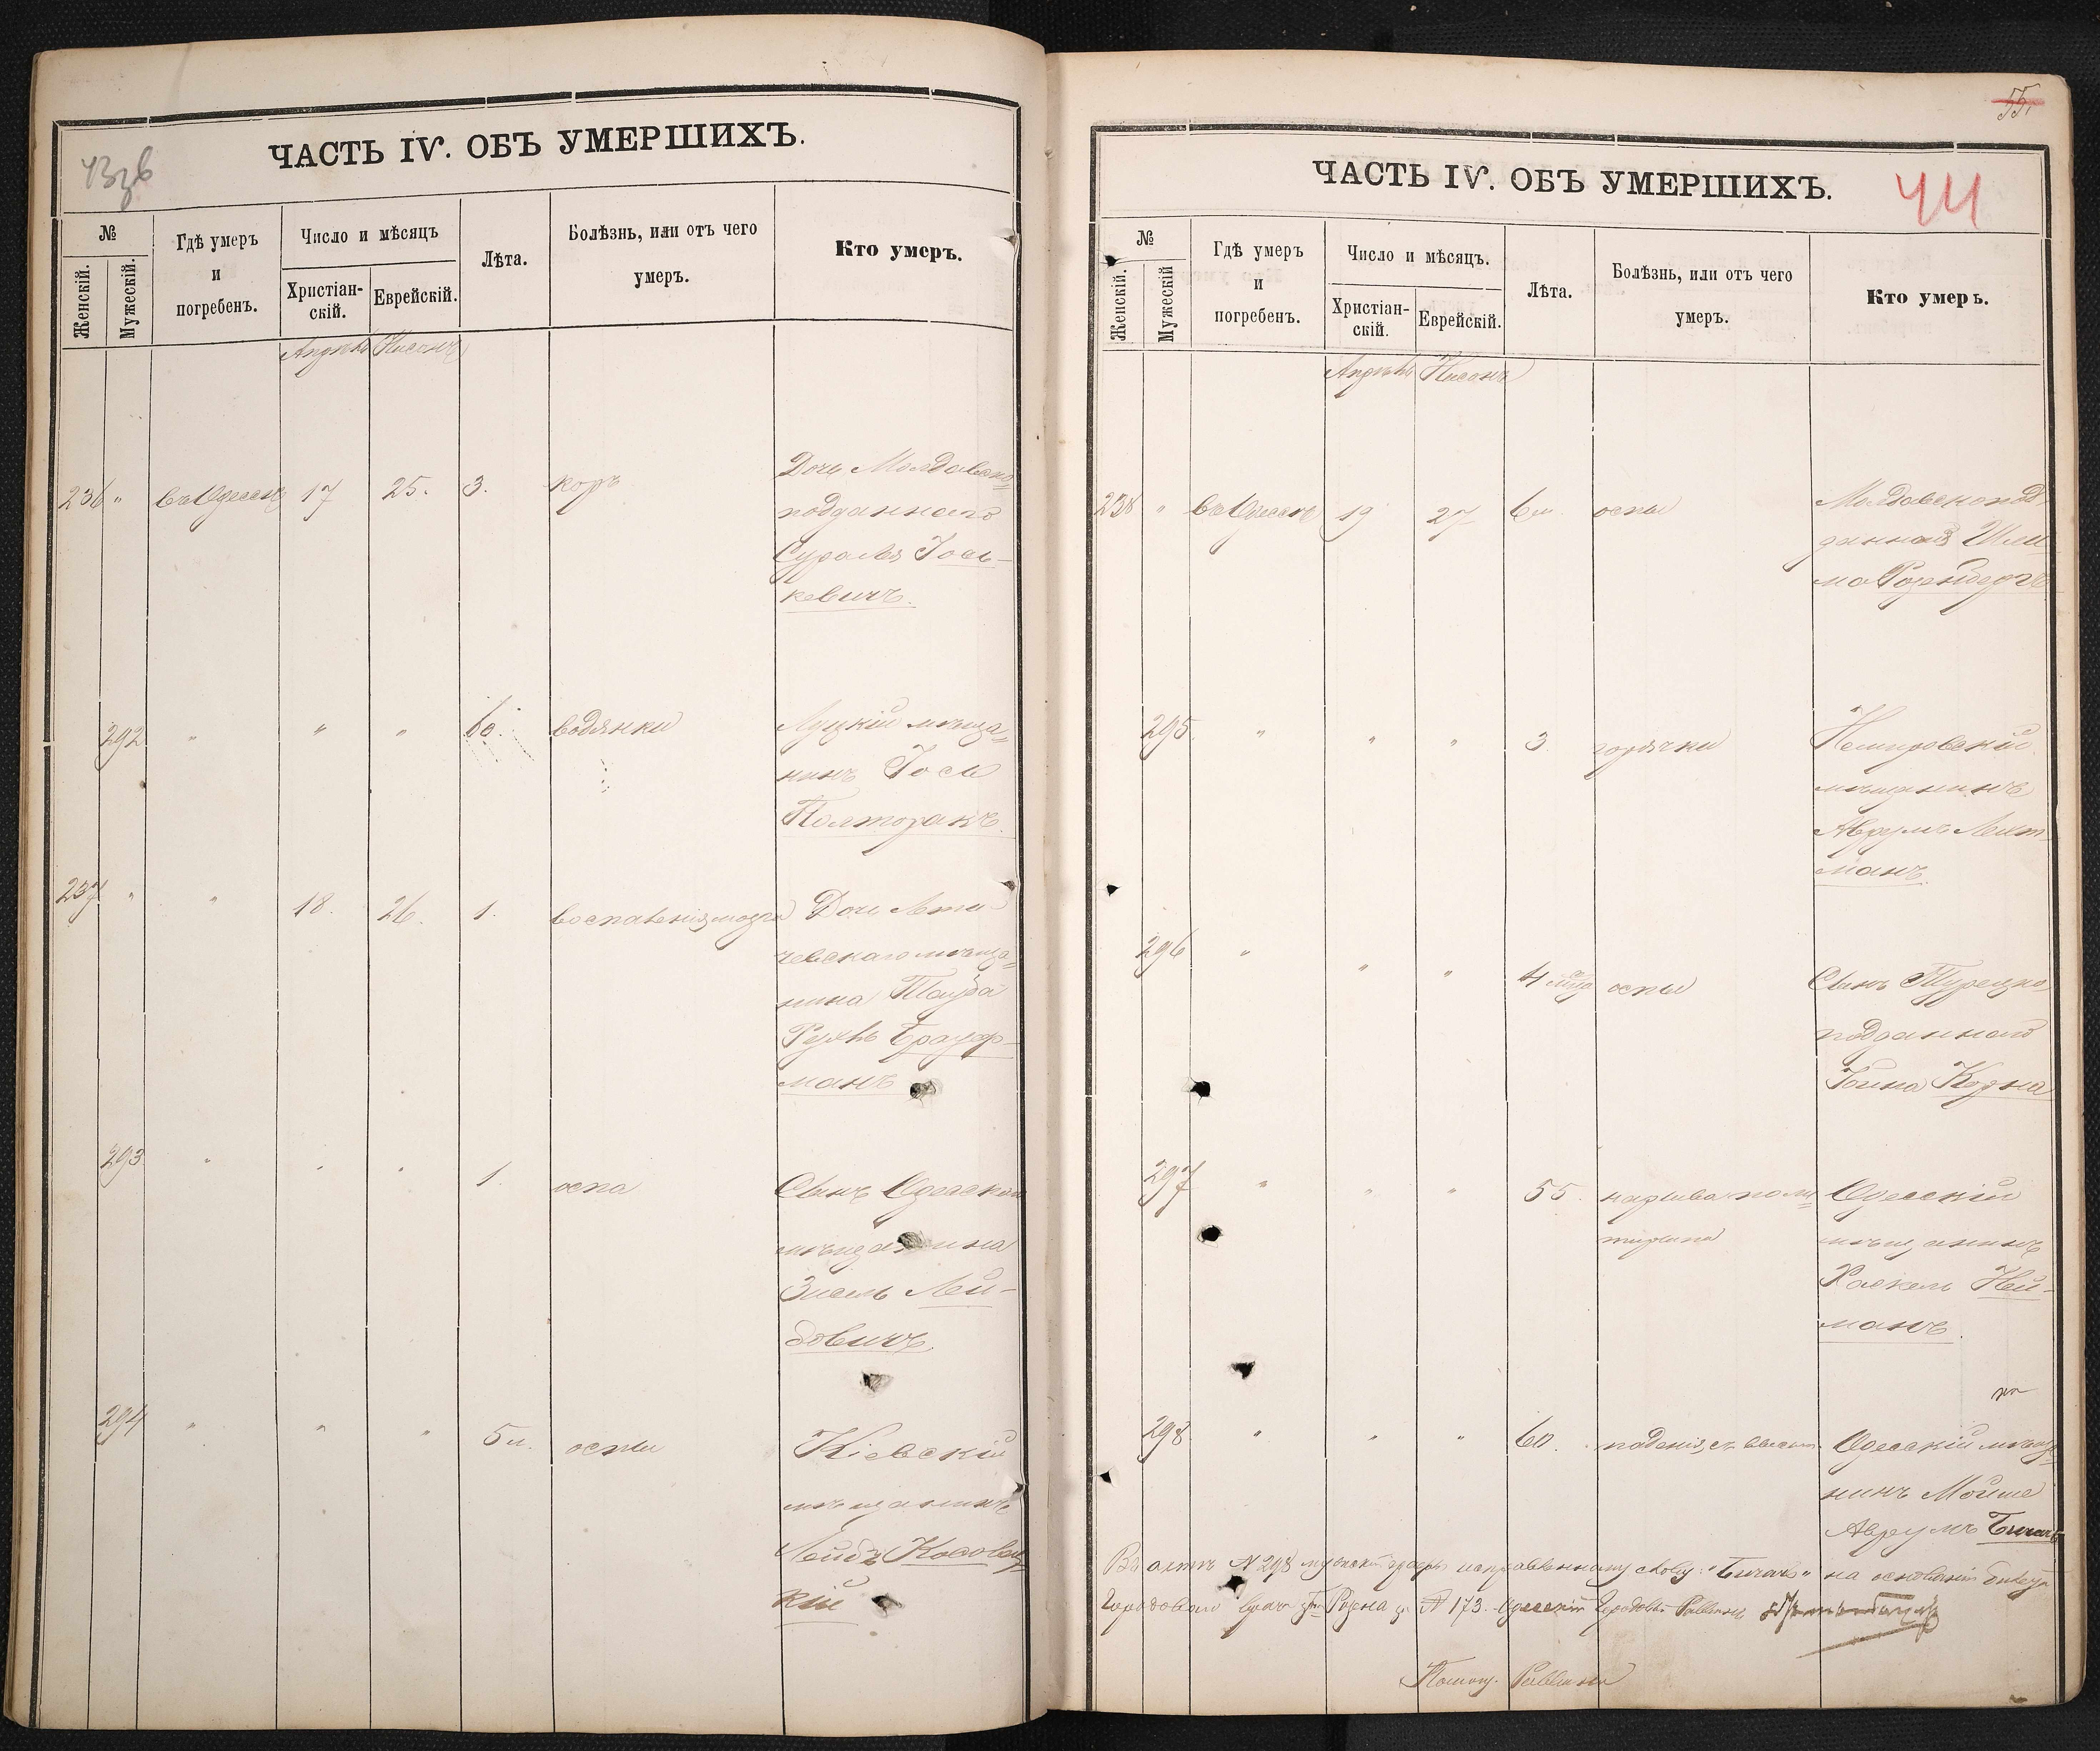 ЧАСТЬ IV. ОБЪ УМЕРШИХЪ.
№
Женскій.
Мужескій.
Гдѣ умеръ
и
погребенъ.
Число и мѣсяцъ
Христіан-
скій.
Еврейскій.
Лѣта.
Болѣзнь, или отъ чего
умеръ.
Кто умеръ.
Апрѣль Нисонъ
236 " въ Одессѣ 17 25. 3. корь
Дочь Молдавско=
подданного
Сураля Іось-
кевичъ.
292 " " " 60. водянки
Луцкій мѣща=
нинъ Іось
Полторакъ.
237 " " 18. 26. 1. воспаленія мозга
Дочь Лети-
чевскаго мѣща=
нина Тауба
Рухль Брауф-
манъ
293 " " " 1. оспа
Сынъ Одесскаго
мѣщанина
Зисель Лей-
бовичъ
294 " " " 5 м. оспы
Кіевскій
мѣщанинъ
Лейбъ Косовец-
кій
55.
ЧАСТЬ IV. ОБЪ УМЕРШИХЪ.
44
№
Женскій.
Мужескій
Гдѣ умеръ
и
погребенъ.
Число и мѣсяцъ.
Христіан-
скій.
Еврейскій.
Лѣта.
Болѣзнь, или отъ чего
умеръ.
Кто умеръ.
Апрѣль Нисонъ
238 " въ Одессѣ 19 27 6 м. оспы
Молдавскопод-
данная Шли-
ма Розенбергъ
295. " " " 3. горячки
Немировскій
мѣщанинъ
Аврумъ Лехт-
манъ.
296 " " " 4 мца оспы
Сынъ Турецко
подданнаго
Коина Корна
297 " " " 55. нарыва
Одесскій
мѣщанинъ
Хаскель Ней-
манъ.
298 " " " 60. паденія съ высоты
Одесскій мѣща=
нинъ Мойше
Аврумъ Бичачъ
Въ актѣ № 298 мужской графы исправленному слову: "Бичачъ" на основаніи билета
Городоваго врача Розена за № 173. Одесскій Городовой Раввинъ
Помощ. Раввина